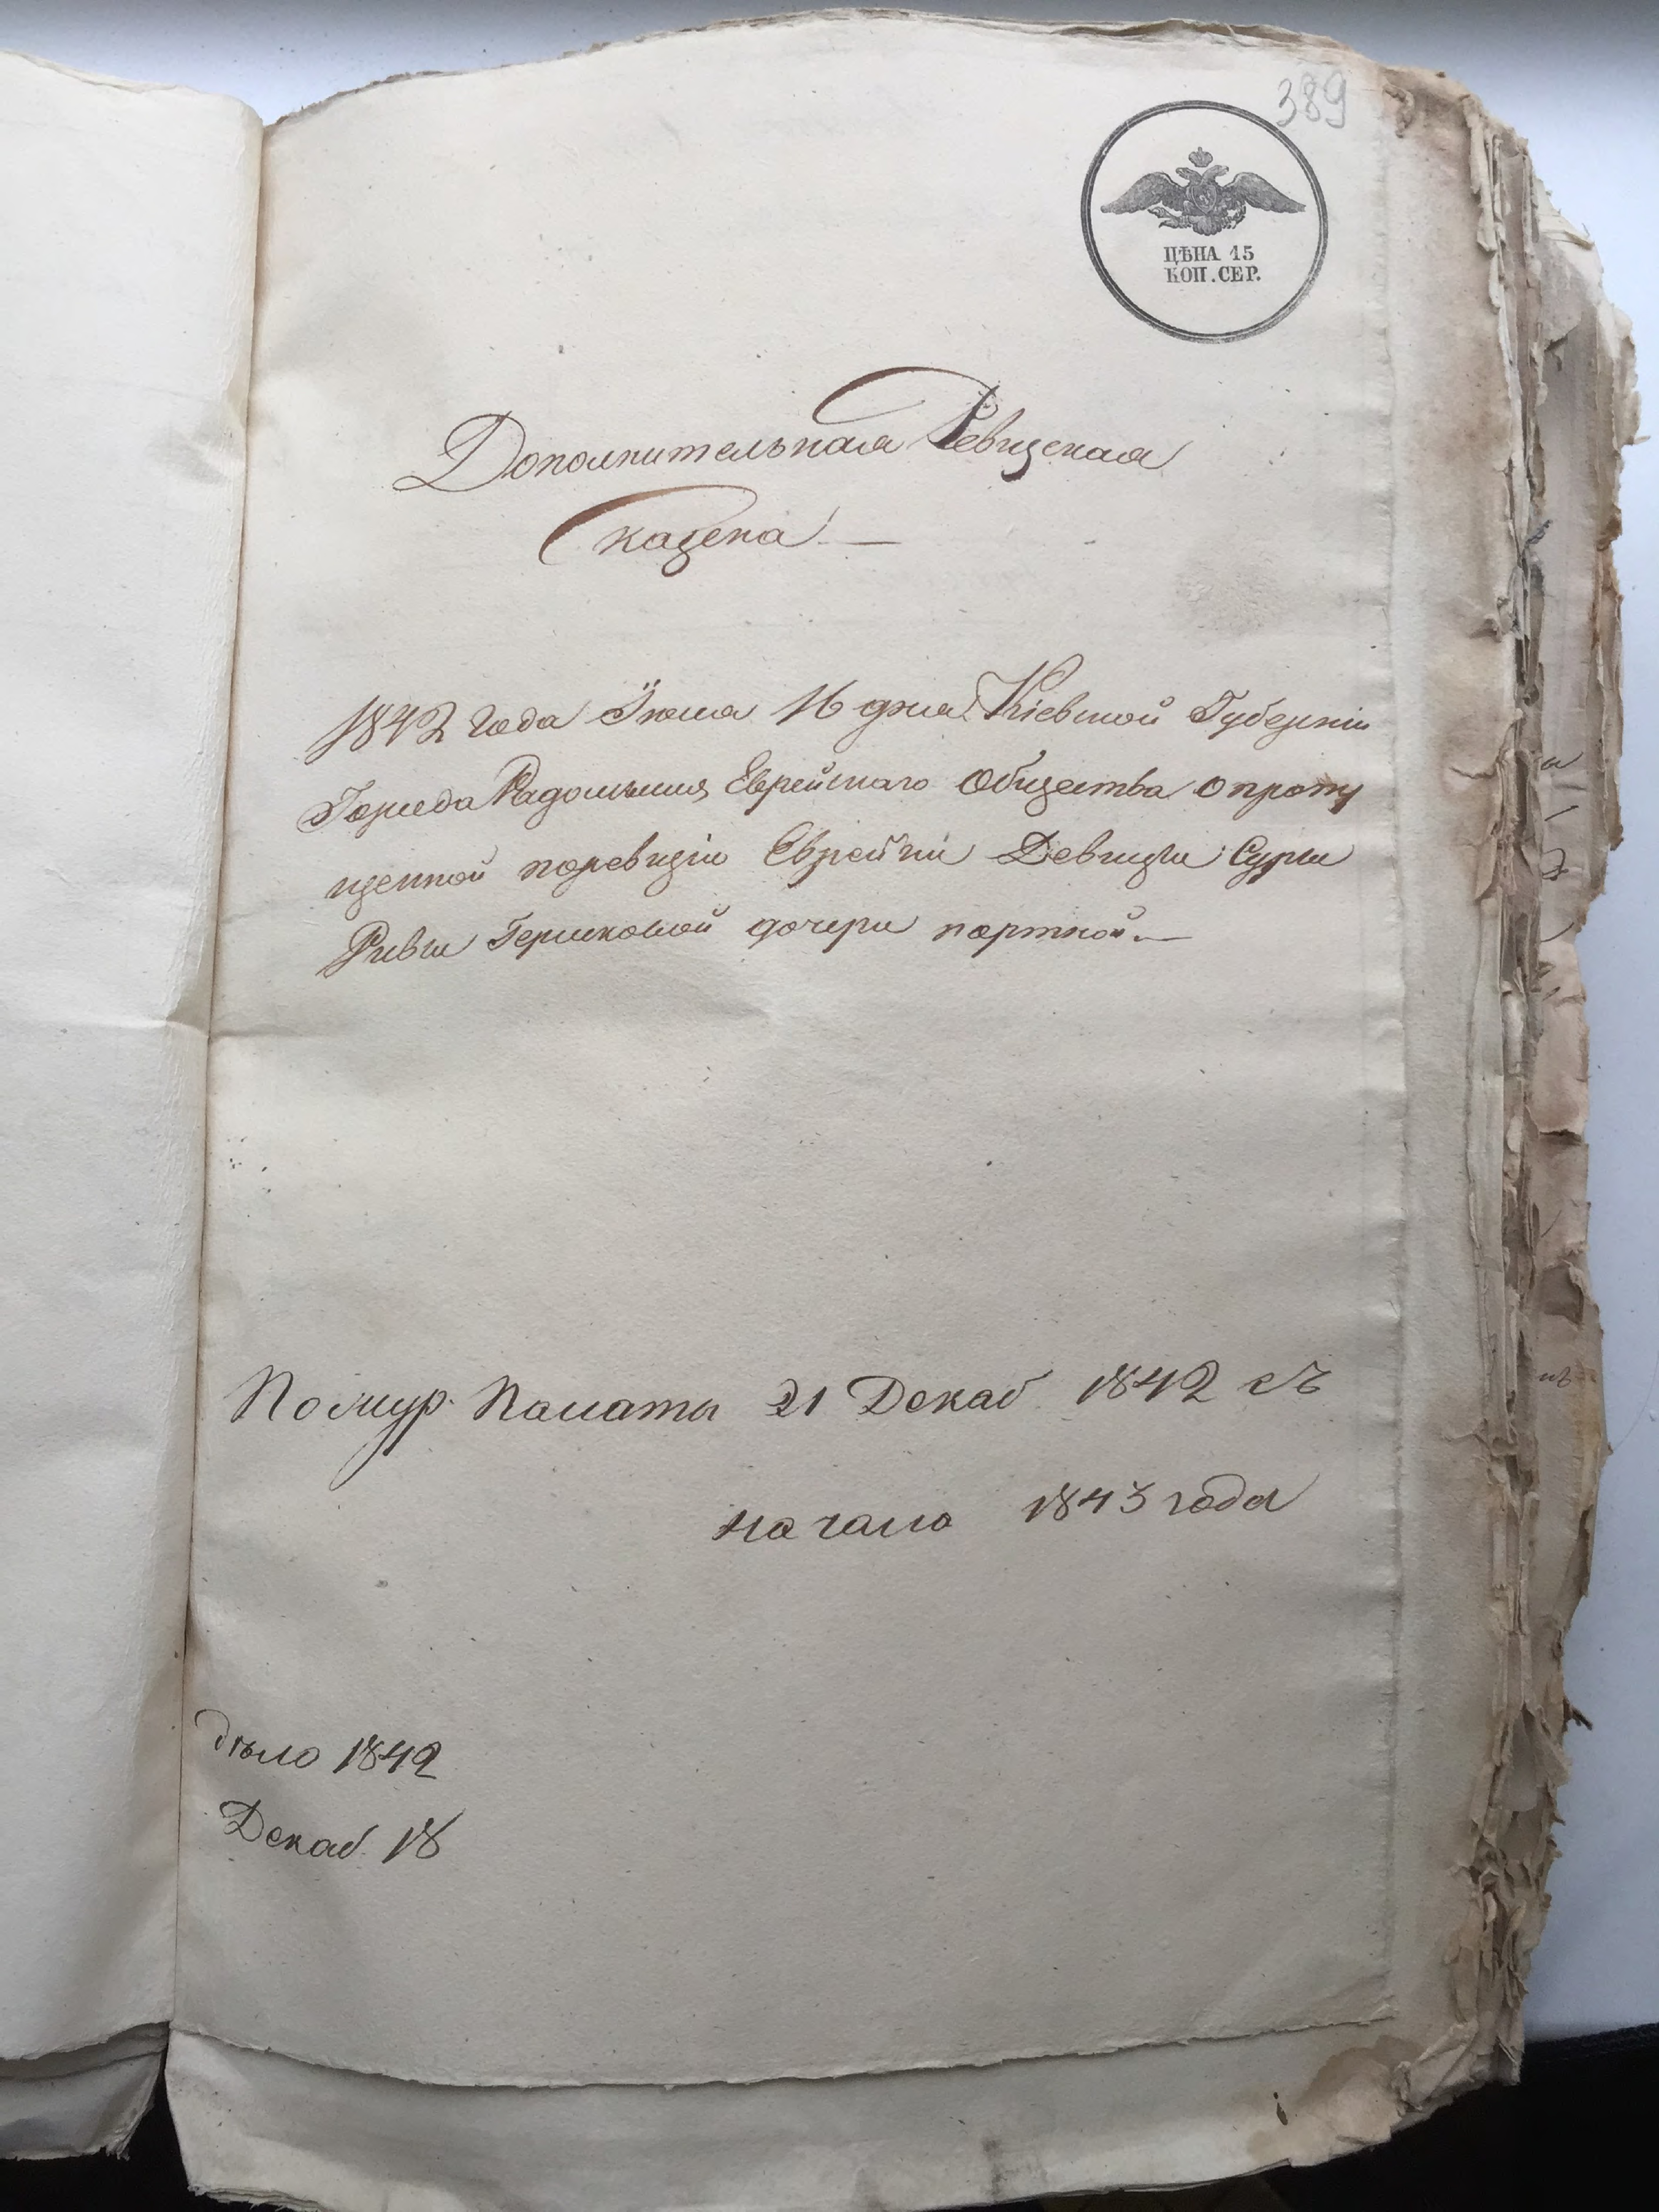 389
ЦѢНА 15
КОП. СЕР.
Дополнительная Ревизская
Сказка —
1842 года Iюня 16 дня Кіевской Губерніи
Города Радомысля Еврейскаго Общества о пропу
щенной поревизіи Еврейки Девицы Суры
Ривы Гершковой дочери портной. —
По жур. Палаты 21 Декаб 1842 съ
начала 1843 года
дѣло 1842
Декаб 18